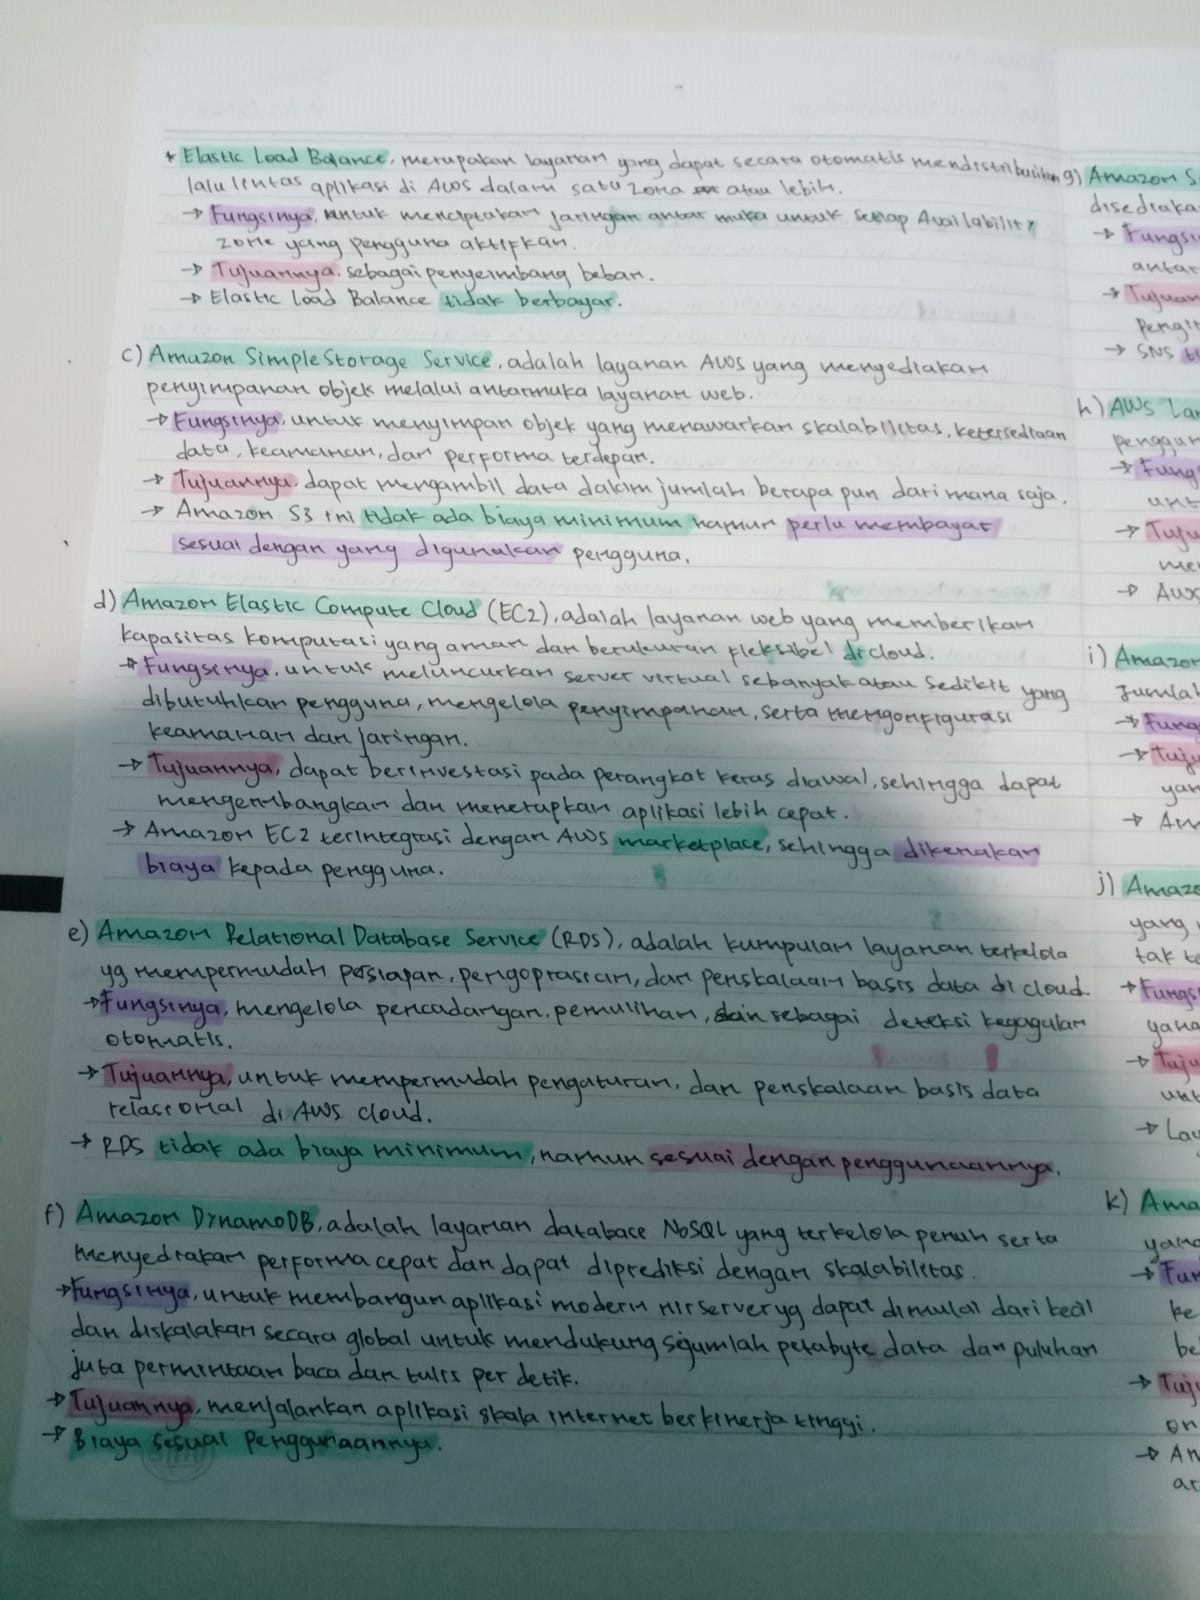 * Elastic Load Balance, merupakan layanan yang dapat secara otomatis mendistribusikan
lalu lintas aplikasi di AWS dalam satu zona atau lebih.
→ Fungsinya, untuk menciptakan jaringan antar muka untuk setiap Availability
zone yang pengguna aktifkan.
→ Tujuannya, sebagai penyeimbang beban.
→ Elastic Load Balance tidak berbayar.
c) Amazon Simple Storage Service, adalah layanan AWS yang menyediakan
penyimpanan objek melalui antarmuka layanan web.
→ Fungsinya, untuk menyimpan objek yang menawarkan skalabilitas, ketersediaan
data, keamanan, dan performa terdepan.
→ Tujuannya, dapat mengambil data dalam jumlah berapa pun dari mana saja.
→ Amazon S3 ini tidak ada biaya minimum namun perlu membayar
sesuai dengan yang digunakan pengguna.
d) Amazon Elastic Compute Cloud (EC2), adalah layanan web yang memberikan
kapasitas komputasi yang aman dan berukuran fleksibel di cloud.
→ Fungsinya, untuk meluncurkan server virtual sebanyak atau sedikit yang
dibutuhkan pengguna, mengelola penyimpanan, serta mengonfigurasi
keamanan dan jaringan.
→ Tujuannya, dapat berinvestasi pada perangkat keras diawal, sehingga dapat
mengembangkan dan menerapkan aplikasi lebih cepat.
→ Amazon EC2 terintegrasi dengan AWS marketplace, sehingga dikenakan
biaya kepada pengguna.
e) Amazon Relational Database Service (RDS), adalah kumpulan layanan terkelola
yg mempermudah persiapan, pengoprasian, dan penskalaan basis data di cloud.
→ Fungsinya, mengelola pencadangan, pemulihan, dan sebagai deteksi kegagalan
otomatis.
→ Tujuannya, untuk mempermudah pengaturan, dan penskalaan basis data
relasional di AWS cloud.
→ RDS tidak ada biaya minimum, namun sesuai dengan penggunaannya.
f) Amazon DynamoDB, adalah layanan database NoSQL yang terkelola penuh serta
menyediakan performa cepat dan dapat diprediksi dengan skalabilitas.
→ Fungsinya, untuk membangun aplikasi modern nirserver yg dapat dimulai dari kecil
dan diskalakan secara global untuk mendukung sejumlah petabyte data dan puluhan
juta permintaan baca dan tulis per detik.
→ Tujuannya, menjalankan aplikasi skala internet berkinerja tinggi.
→ Biaya sesuai Penggunaannya.
g) Amazon S
disediaka
→ Fungsi
antar
→ Tujuan
Pengir
→ SNS ti
h) AWS La
penggun
→ Fungs
unt
→ Tuju
me
→ AWS
i) Amazon
Jumlah
→ Fung
→ Tuju
yan
→ Am
j) Amazo
yang
tak te
→ Fungs
yang
→ Tuju
unt
→ Lay
k) Ama
yang
→ Fun
ke
be
→ Tuj
on
→ Am
ar